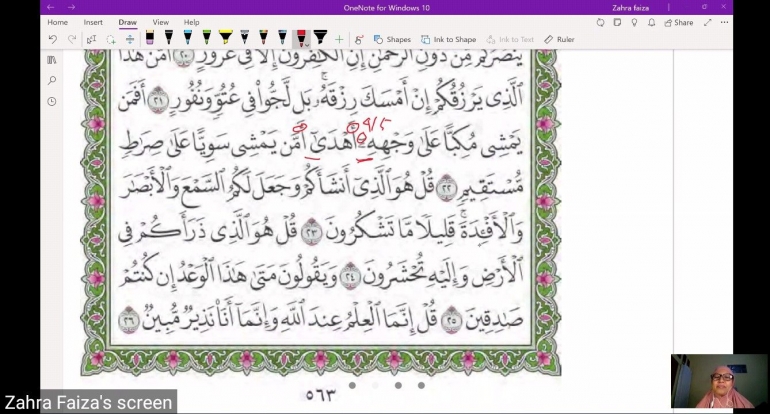 OneNote for Windows 10
Zahra faiza
Home Insert Draw View Help
Share
Shapes Ink to Shape Ink to Text Math Ruler
يَنصُرُكُم مِّن دُونِ الرَّحْمَٰنِ إِنِ الْكَافِرُونَ إِلَّا فِي غُرُورٍ ٢٠ أَمَّنْ هَٰذَا
الَّذِي يَرْزُقُكُمْ إِنْ أَمْسَكَ رِزْقَهُ بَل لَّجُّوا فِي عُتُوٍّ وَنُفُورٍ ٢١ أَفَمَن
يَمْشِي مُكِبًّا عَلَىٰ وَجْهِهِ أَهْدَىٰ أَمَّن يَمْشِي سَوِيًّا عَلَىٰ صِرَاطٍ
مُّسْتَقِيمٍ ٢٢ قُلْ هُوَ الَّذِي أَنشَأَكُمْ وَجَعَلَ لَكُمُ السَّمْعَ وَالْأَبْصَارَ
وَالْأَفْئِدَةَ قَلِيلًا مَّا تَشْكُرُونَ ٢٣ قُلْ هُوَ الَّذِي ذَرَأَكُمْ فِي
الْأَرْضِ وَإِلَيْهِ تُحْشَرُونَ ٢٤ وَيَقُولُونَ مَتَىٰ هَٰذَا الْوَعْدُ إِن كُنتُمْ
صَادِقِينَ ٢٥ قُلْ إِنَّمَا الْعِلْمُ عِندَ اللَّهِ وَإِنَّمَا أَنَا نَذِيرٌ مُّبِينٌ ٢٦
٥٦٣
Zahra Faiza's screen